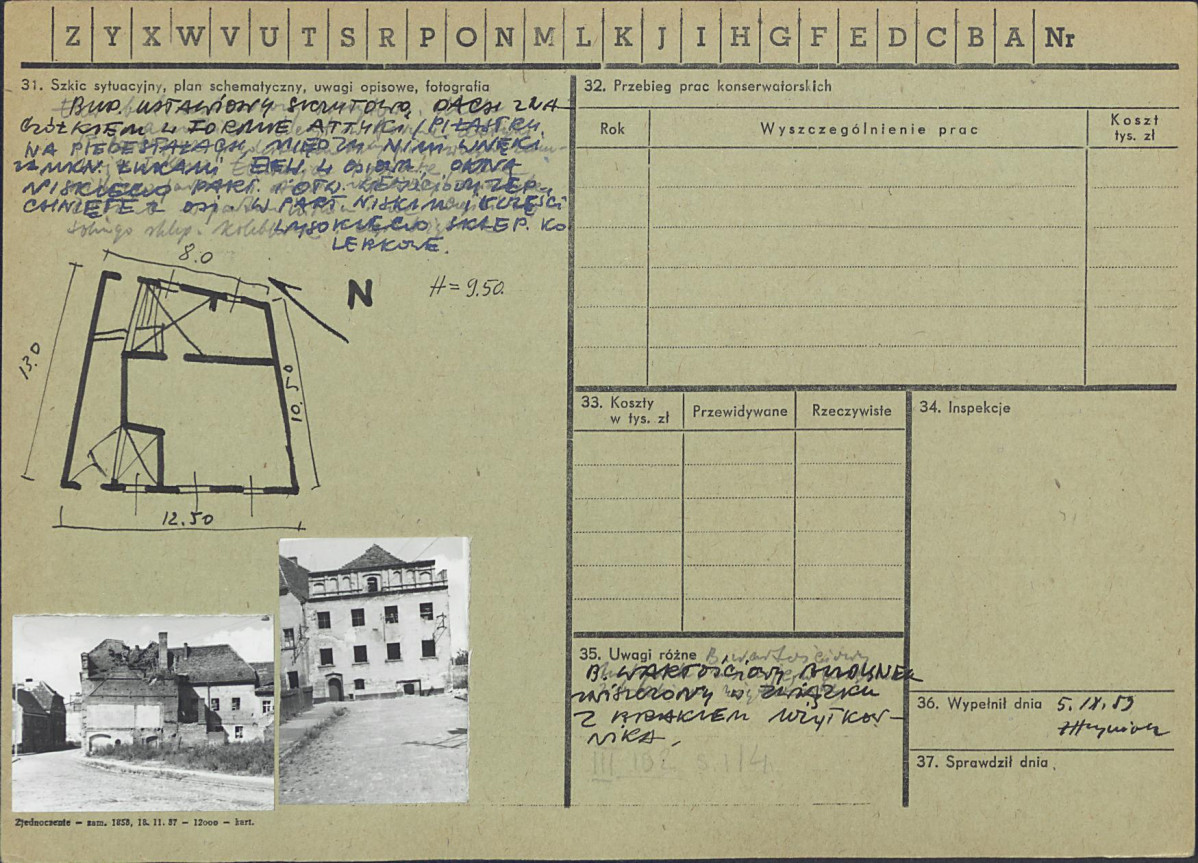 Z Y X W V U T S R P O N M L K J I H G F E D C B A Nr
31. Szkic sytuacyjny, plan schematyczny, uwagi opisowe, fotografia
BUD. USTAWIONY SZCZYTOWO, DACH ZNA
CZÓŁKIEM W FORMIE ATTYKI /PILASTRY
NA PIEDESTAŁACH, MIĘDZY NIMI WNĘKI
ZAMKN. ŁUKAMI 4 OSIOWA, OKNA
NISKIEGO PART. OTW. WEJŚCIOWY ZEP
CHNIĘTE Z OSI. W PART. NISKIM I CZĘŚCI
WYSOKIEGO SKLEP. KO
LEBKOWE.
8.0
N
H = 9.50.
13.0
10.50
12.50
Zjednoczenie — zam. 1858, 18. 11. 57 — 12000 — kart.
32. Przebieg prac konserwatorskich
Rok
Wyszczególnienie prac
Koszt
tys. zł
33. Koszty
w tys. zł
Przewidywane
Rzeczywiste
34. Inspekcje
35. Uwagi różne
B. WARTOŚCIOWY BUDYNEK
ZNISZCZONY W ZWIĄZKU
Z BRAKIEM UŻYTKOW-
NIKA.
36. Wypełnił dnia 5. IX. 59
37. Sprawdził dnia